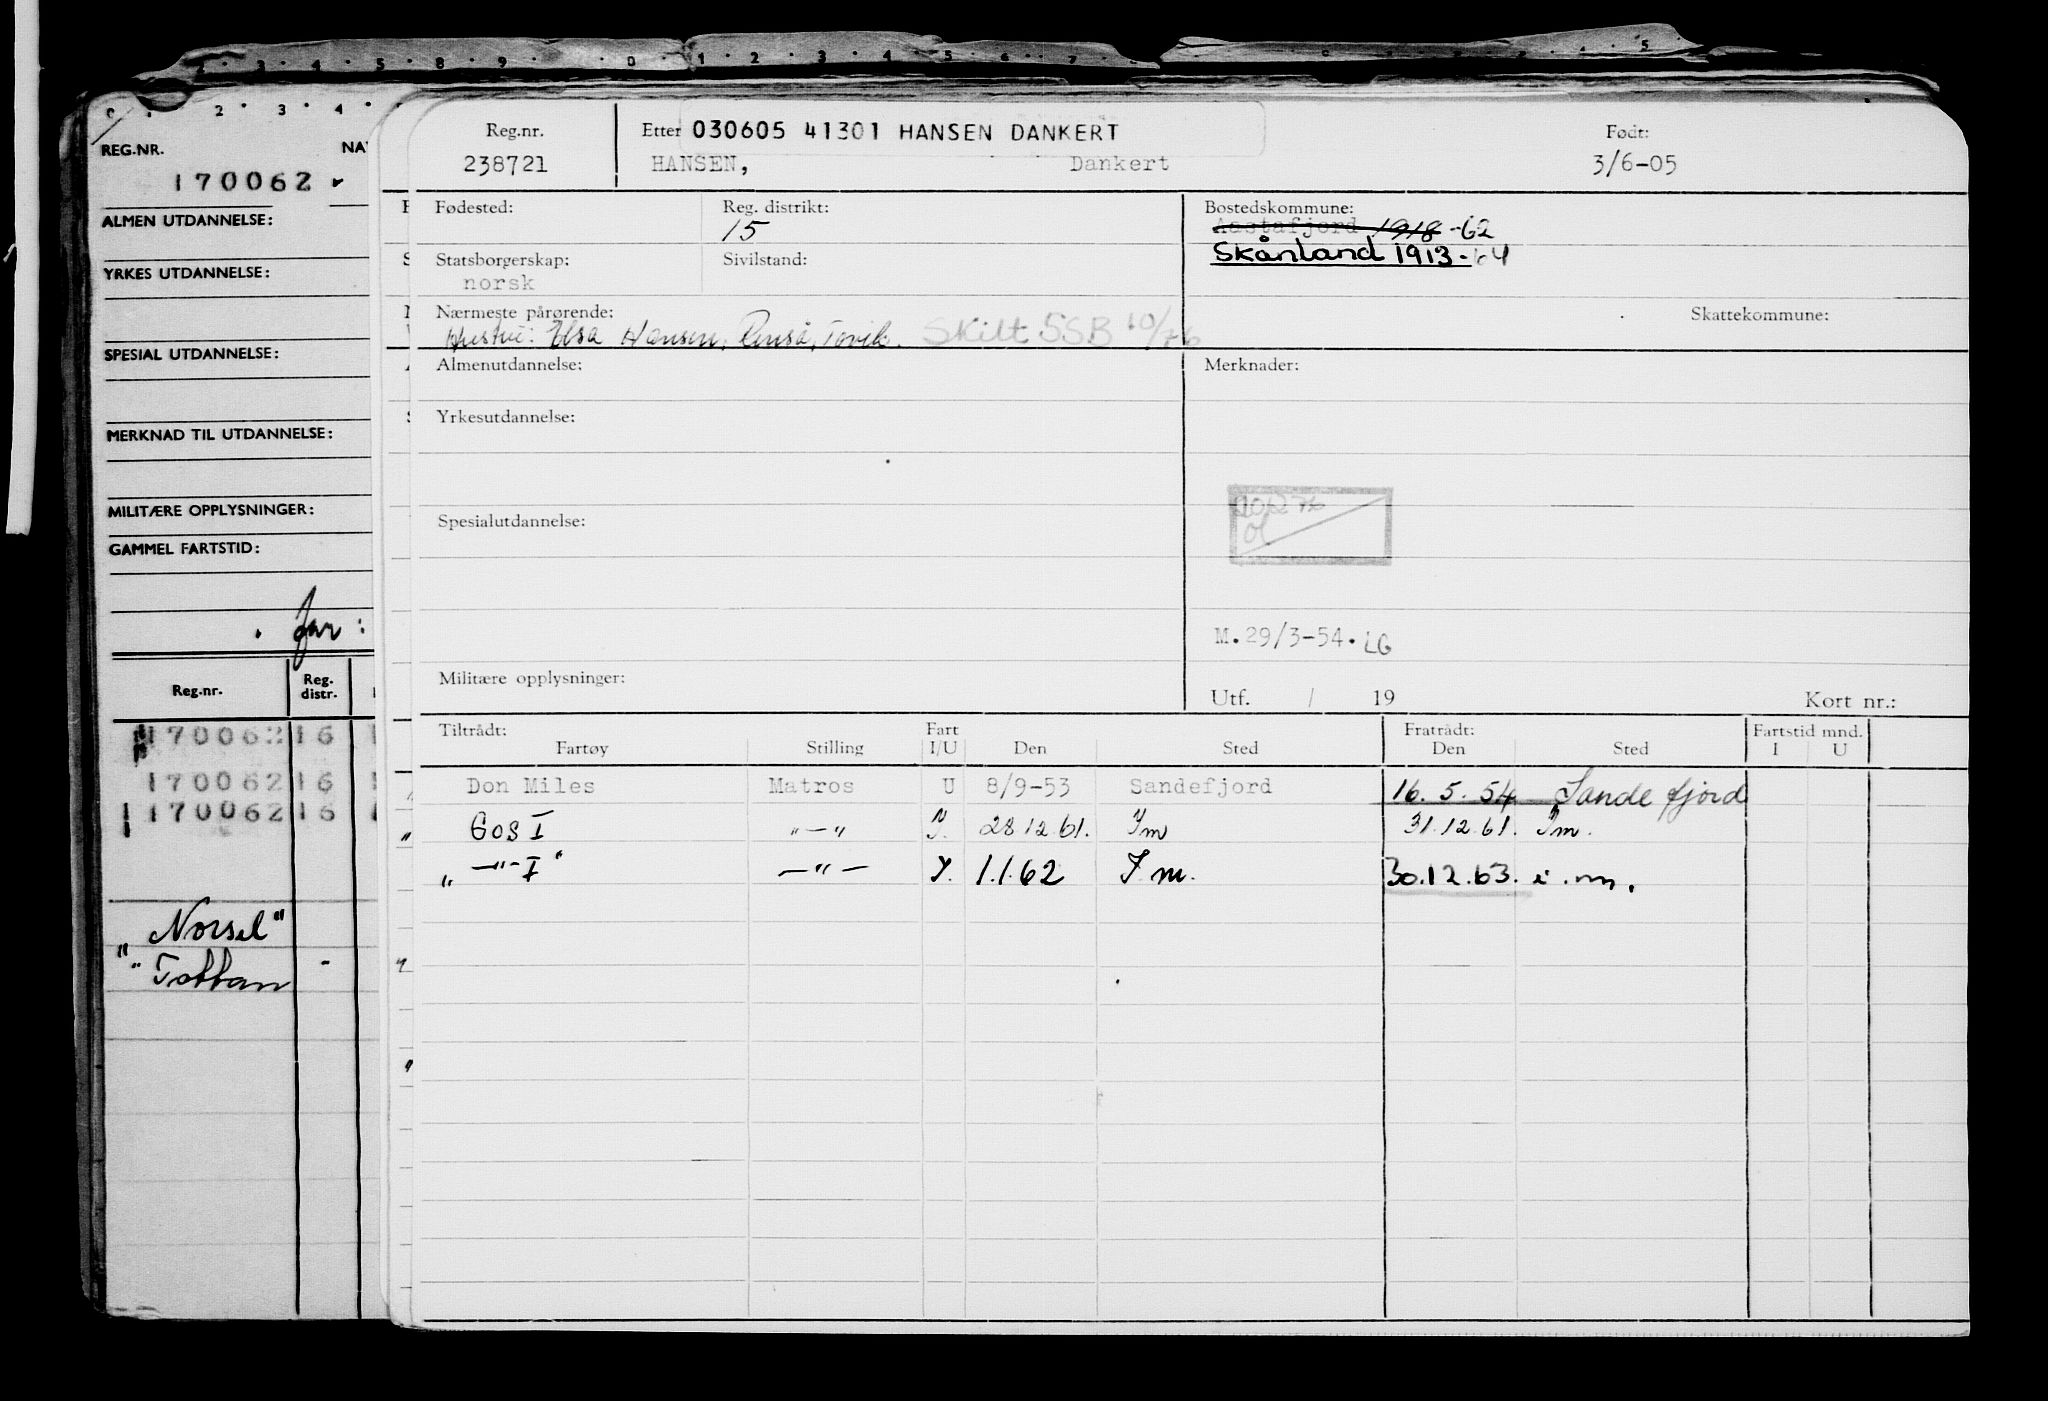 2 · 3 · 4 · 5 8 · 9 · 0 · 1 · 2 · 3 · 4 · 5 · 6 · 7
2 · 3 · 4 ·
REG.NR.
170062
ALMEN UTDANNELSE:
YRKES UTDANNELSE:
SPESIAL UTDANNELSE:
MERKNAD TIL UTDANNELSE:
MILITÆRE OPPLYSNINGER:
GAMMEL FARTSTID:
far:
Reg.nr. Reg. distr.
170062 16
170062 16
170062 16
"Norsel"
" Tottan
Reg.nr. Etter 030605 41301 HANSEN DANKERT Født:
238721 HANSEN, Dankert 3/6-05
Fødested: Reg. distrikt: Bostedskommune:
15 1918 -62
Skånland 1913.-64
Statsborgerskap: Sivilstand:
norsk
Nærmeste pårørende: Skattekommune:
Hustru: Elsa Hansen, Renså, Tovik. Skilt SSB 10/76
Almenutdannelse: Merknader:
Yrkesutdannelse:
Spesialutdannelse:
M.29/3-54. LG
Militære opplysninger: Utf. / 19 Kort nr.:
Tiltrådt: Fart Fratrådt: Fartstid mnd.
Fartøy Stilling I/U Den Sted Den Sted I U
Don Miles Matros U 8/9-53 Sandefjord 16.5.54 Sandefjord
Gos I "—" 28.12.61. Im 31.12.61. Im.
" —"- I" —"— I. 1.1.62 I m. 30.12.63. i.m.